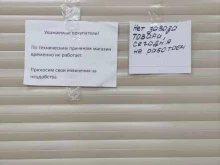 Уважаемые покупатели!
По техническим причинам магазин
временно не работает.
Приносим свои извинения за
неудобства.
Нет завоза
товара,
сегодня
не работаем